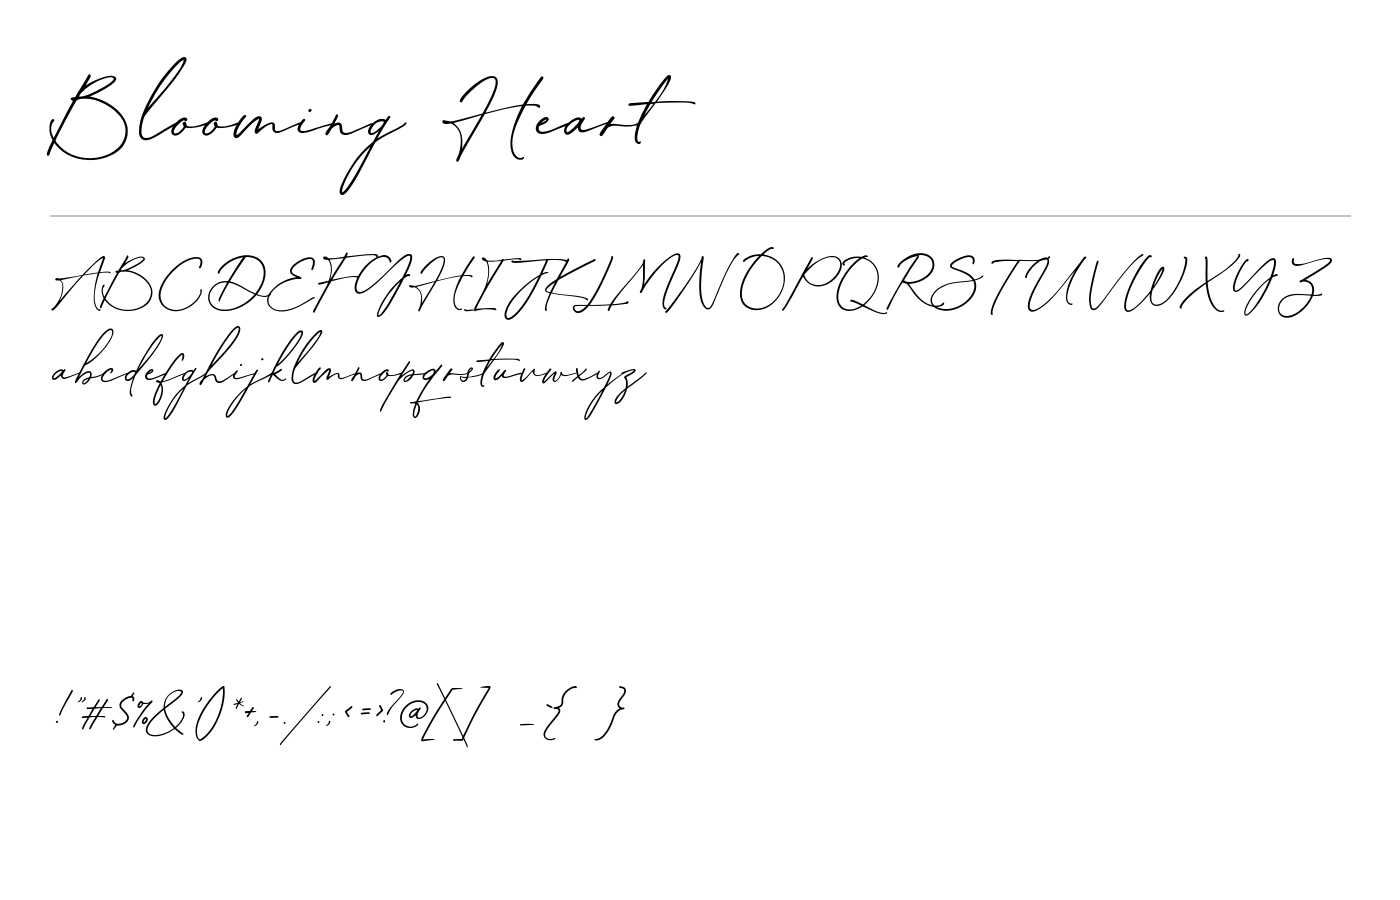 Blooming Heart
ABCDEFGHIJKLMNOPQRSTUVWXYZ
abcdefghijklmnopqrstuvwxyz
!"#$%&'()*+,-./:;<=>?@[\] _{ }